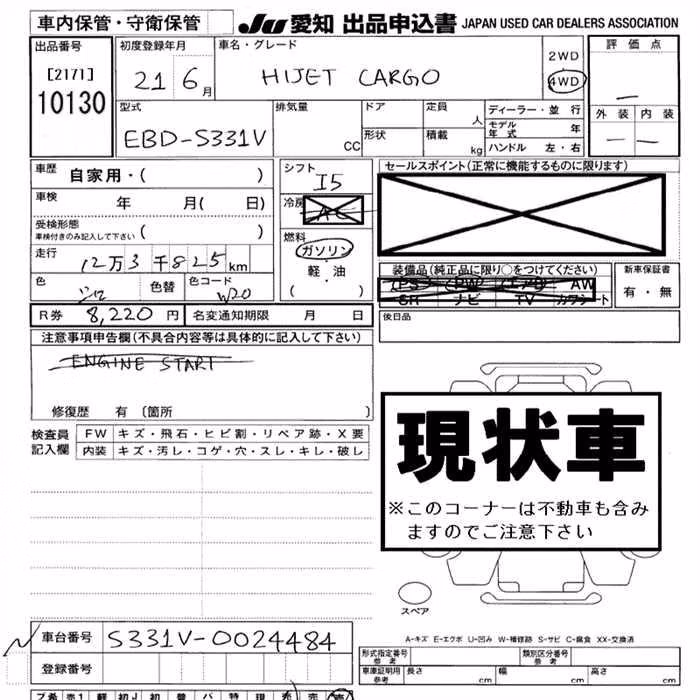 車内保管・守衛保管 JU 愛知 出品申込書 JAPAN USED CAR DEALERS ASSOCIATION
出品番号 初度登録年月 車名・グレード 2WD 評価点
[2171] 21 6月 HIJET CARGO 4WD
10130 外装 内装
型式 排気量 ドア 定員 ディーラー・並行
EBD-S331V CC 形状 人 モデル年式 年
積載 kg ハンドル 左・右
車歴 自家用・( ) シフト I5 セールスポイント(正常に機能するものに限ります)
車検 年 月( 日) 冷房 AC
受検形態
車検付きのみ記入して下さい ( ) 燃料
走行 12万3千825km ガソリン 装備品(純正品に限り○をつけてください) 新車保証書
色 シロ 色替 色コード W20 軽・油 PS PW エアB AW 有・無
( ) SR ナビ TV カワシート
R券 8,220円 名変通知期限 月 日 後日品
注意事項申告欄(不具合内容等は具体的に記入して下さい)
ENGINE START
修復歴 有〔箇所 〕
検査員 FW キズ・飛石・ヒビ割・リペア跡・X要
記入欄 内装 キズ・汚レ・コゲ・穴・スレ・キレ・破レ
現状車
※このコーナーは不動車も含み
ますのでご注意下さい
スペア
車台番号 S331V-0024484 A-キズ E-エクボ U-凹み W-補修跡 S-サビ C-腐食 XX-交換済
登録番号 形式指定番号 参考 類別区分番号 参考
車庫証明用 参考 長さ cm 幅 cm 高さ cm